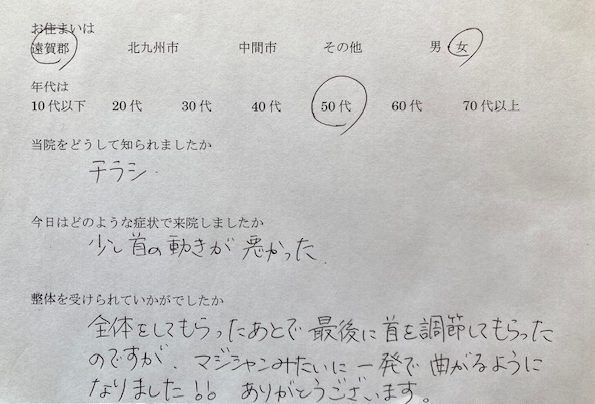 お住まいは
遠賀郡 北九州市 中間市 その他 男・女
年代は
10代以下 20代 30代 40代 50代 60代 70代以上
当院をどうして知られましたか
チラシ.
今日はどのような症状で来院しましたか
少し首の動きが悪かった.
整体を受けられていかがでしたか
全体をしてもらったあとで最後に首を調節してもらった
のですが、マジシャンみたいに一発で曲がるように
なりました!! ありがとうございます。